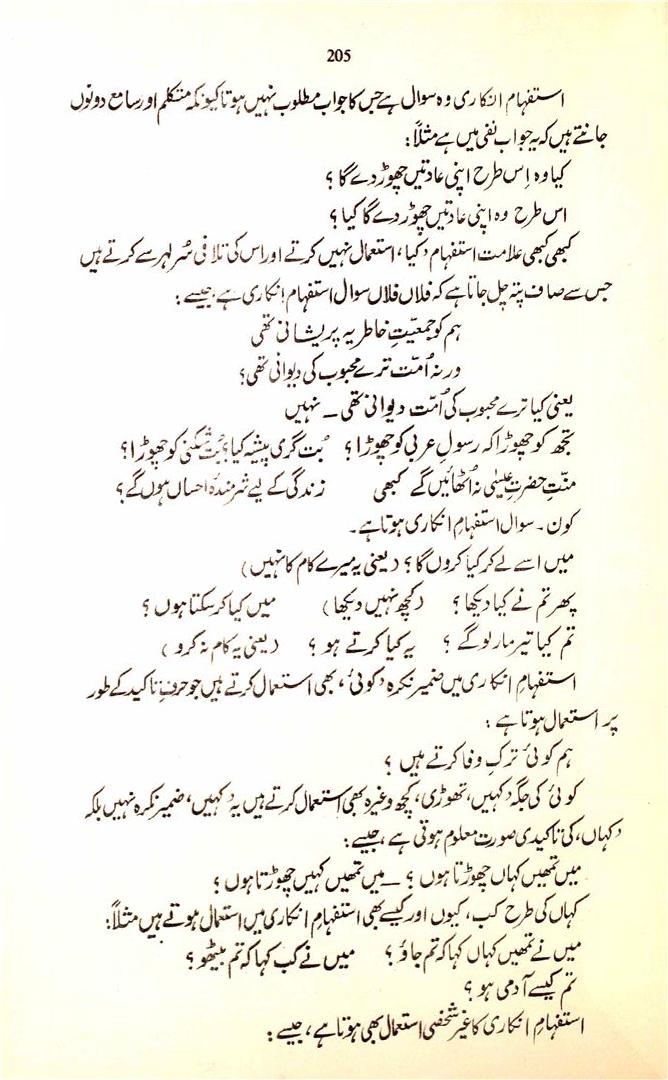 205
استفہام انکاری وہ سوال ہے جس کا جواب مطلوب نہیں ہوتا کیونکہ متکلم اور سامع دونوں
جانتے ہیں کہ یہ جواب نفی میں ہے مثلاً:
کیا وہ اِس طرح اپنی عادتیں چھوڑ دے گا ؟
اس طرح وہ اپنی عادتیں چھوڑ دے گا کیا ؟
کبھی کبھی علامت استفہام 'کیا' استعمال نہیں کرتے اور اس کی تلافی سُر لہر سے کرتے ہیں
جس سے صاف پتہ چل جاتا ہے کہ فلاں فلاں سوال استفہام انکاری ہے، جیسے :
ہم کو جمعیّتِ خاطر یہ پریشانی تھی
ورنہ اُمّت ترے محبوب کی دیوانی تھی؟
یعنی کیا ترے محبوب کی اُمّت دیوانی تھی ـ نہیں
تجھ کو چھوڑا کہ رسولِ عربی کو چھوڑا ؟ بُت گری پیشہ کیا؟ بُت شکنی کو چھوڑا ؟
منّتِ حضرتِ عیسٰی نہ اُٹھائیں گے کبھی زندگی کے لیے شرمندۂ احساں ہوں گے ؟
کون۔ سوال استفہامِ انکاری ہوتا ہے۔
میں اسے لے کر کیا کروں گا ؟ (یعنی یہ میرے کام کا نہیں)
پھر تم نے کیا دیکھا ؟ (کچھ نہیں دیکھا) میں کیا کر سکتا ہوں ؟
تم کیا تیر مار لو گے ؟ یہ کیا کرتے ہو ؟ (یعنی یہ کام نہ کرو)
استفہامِ انکاری میں ضمیر نکرہ 'کوئی' بھی استعمال کرتے ہیں جو حرفِ تاکید کے طور
پر استعمال ہوتا ہے :
ہم کوئی ترکِ وفا کرتے ہیں ؟
کوئی کی جگہ 'کہیں، تھوڑی، کچھ وغیرہ بھی استعمال کرتے ہیں یہ 'کہیں' ضمیر نکرہ نہیں بلکہ
'کہاں' کی تاکیدی صورت معلوم ہوتی ہے جیسے :
میں تمھیں کہاں چھوڑتا ہوں ؟ ـ میں تمھیں کہیں چھوڑتا ہوں ؟
کہاں کی طرح کب، کیوں اور کیسے بھی استفہامِ انکاری میں استعمال ہوتے ہیں مثلاً:
میں نے تمھیں کہاں کہا کہ تم جاؤ ؟ میں نے کب کہا کہ تم بیٹھو ؟
تم کیسے آدمی ہو ؟
استفہامِ انکاری کا غیر شخصی استعمال بھی ہوتا ہے، جیسے :